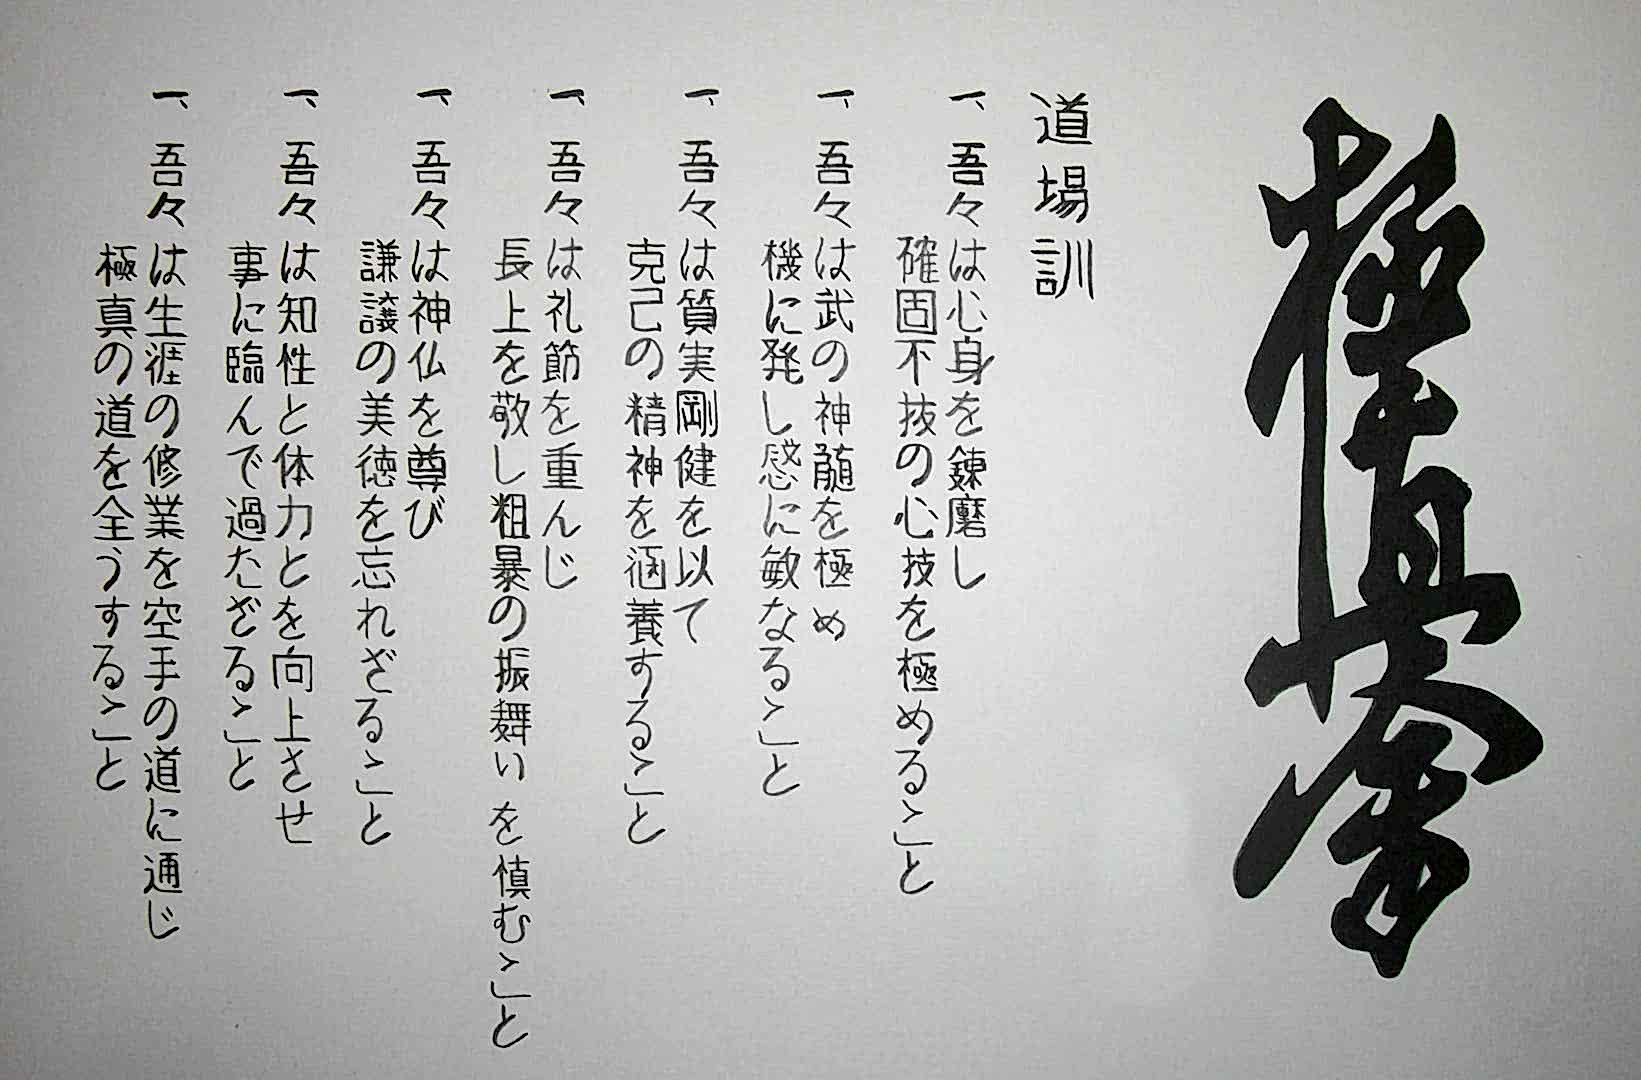 極真会
道場訓
一、吾々は心身を錬磨し
確固不抜の心技を極めること
一、吾々は武の神髄を極め
機に発し感に敏なること
一、吾々は質実剛健を以て
克己の精神を涵養すること
一、吾々は礼節を重んじ
長上を敬し粗暴の振舞いを慎むこと
一、吾々は神仏を尊び
謙譲の美徳を忘れざること
一、吾々は知性と体力とを向上させ
事に臨んで過たざること
一、吾々は生涯の修業を空手の道に通じ
極真の道を全うすること